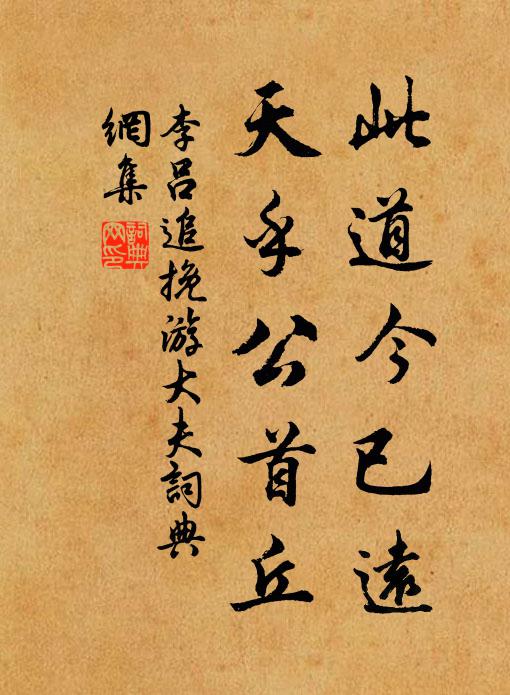 此道今已遠
天乎公首丘
李呂追挽游大夫詞典
網集
詞典網印